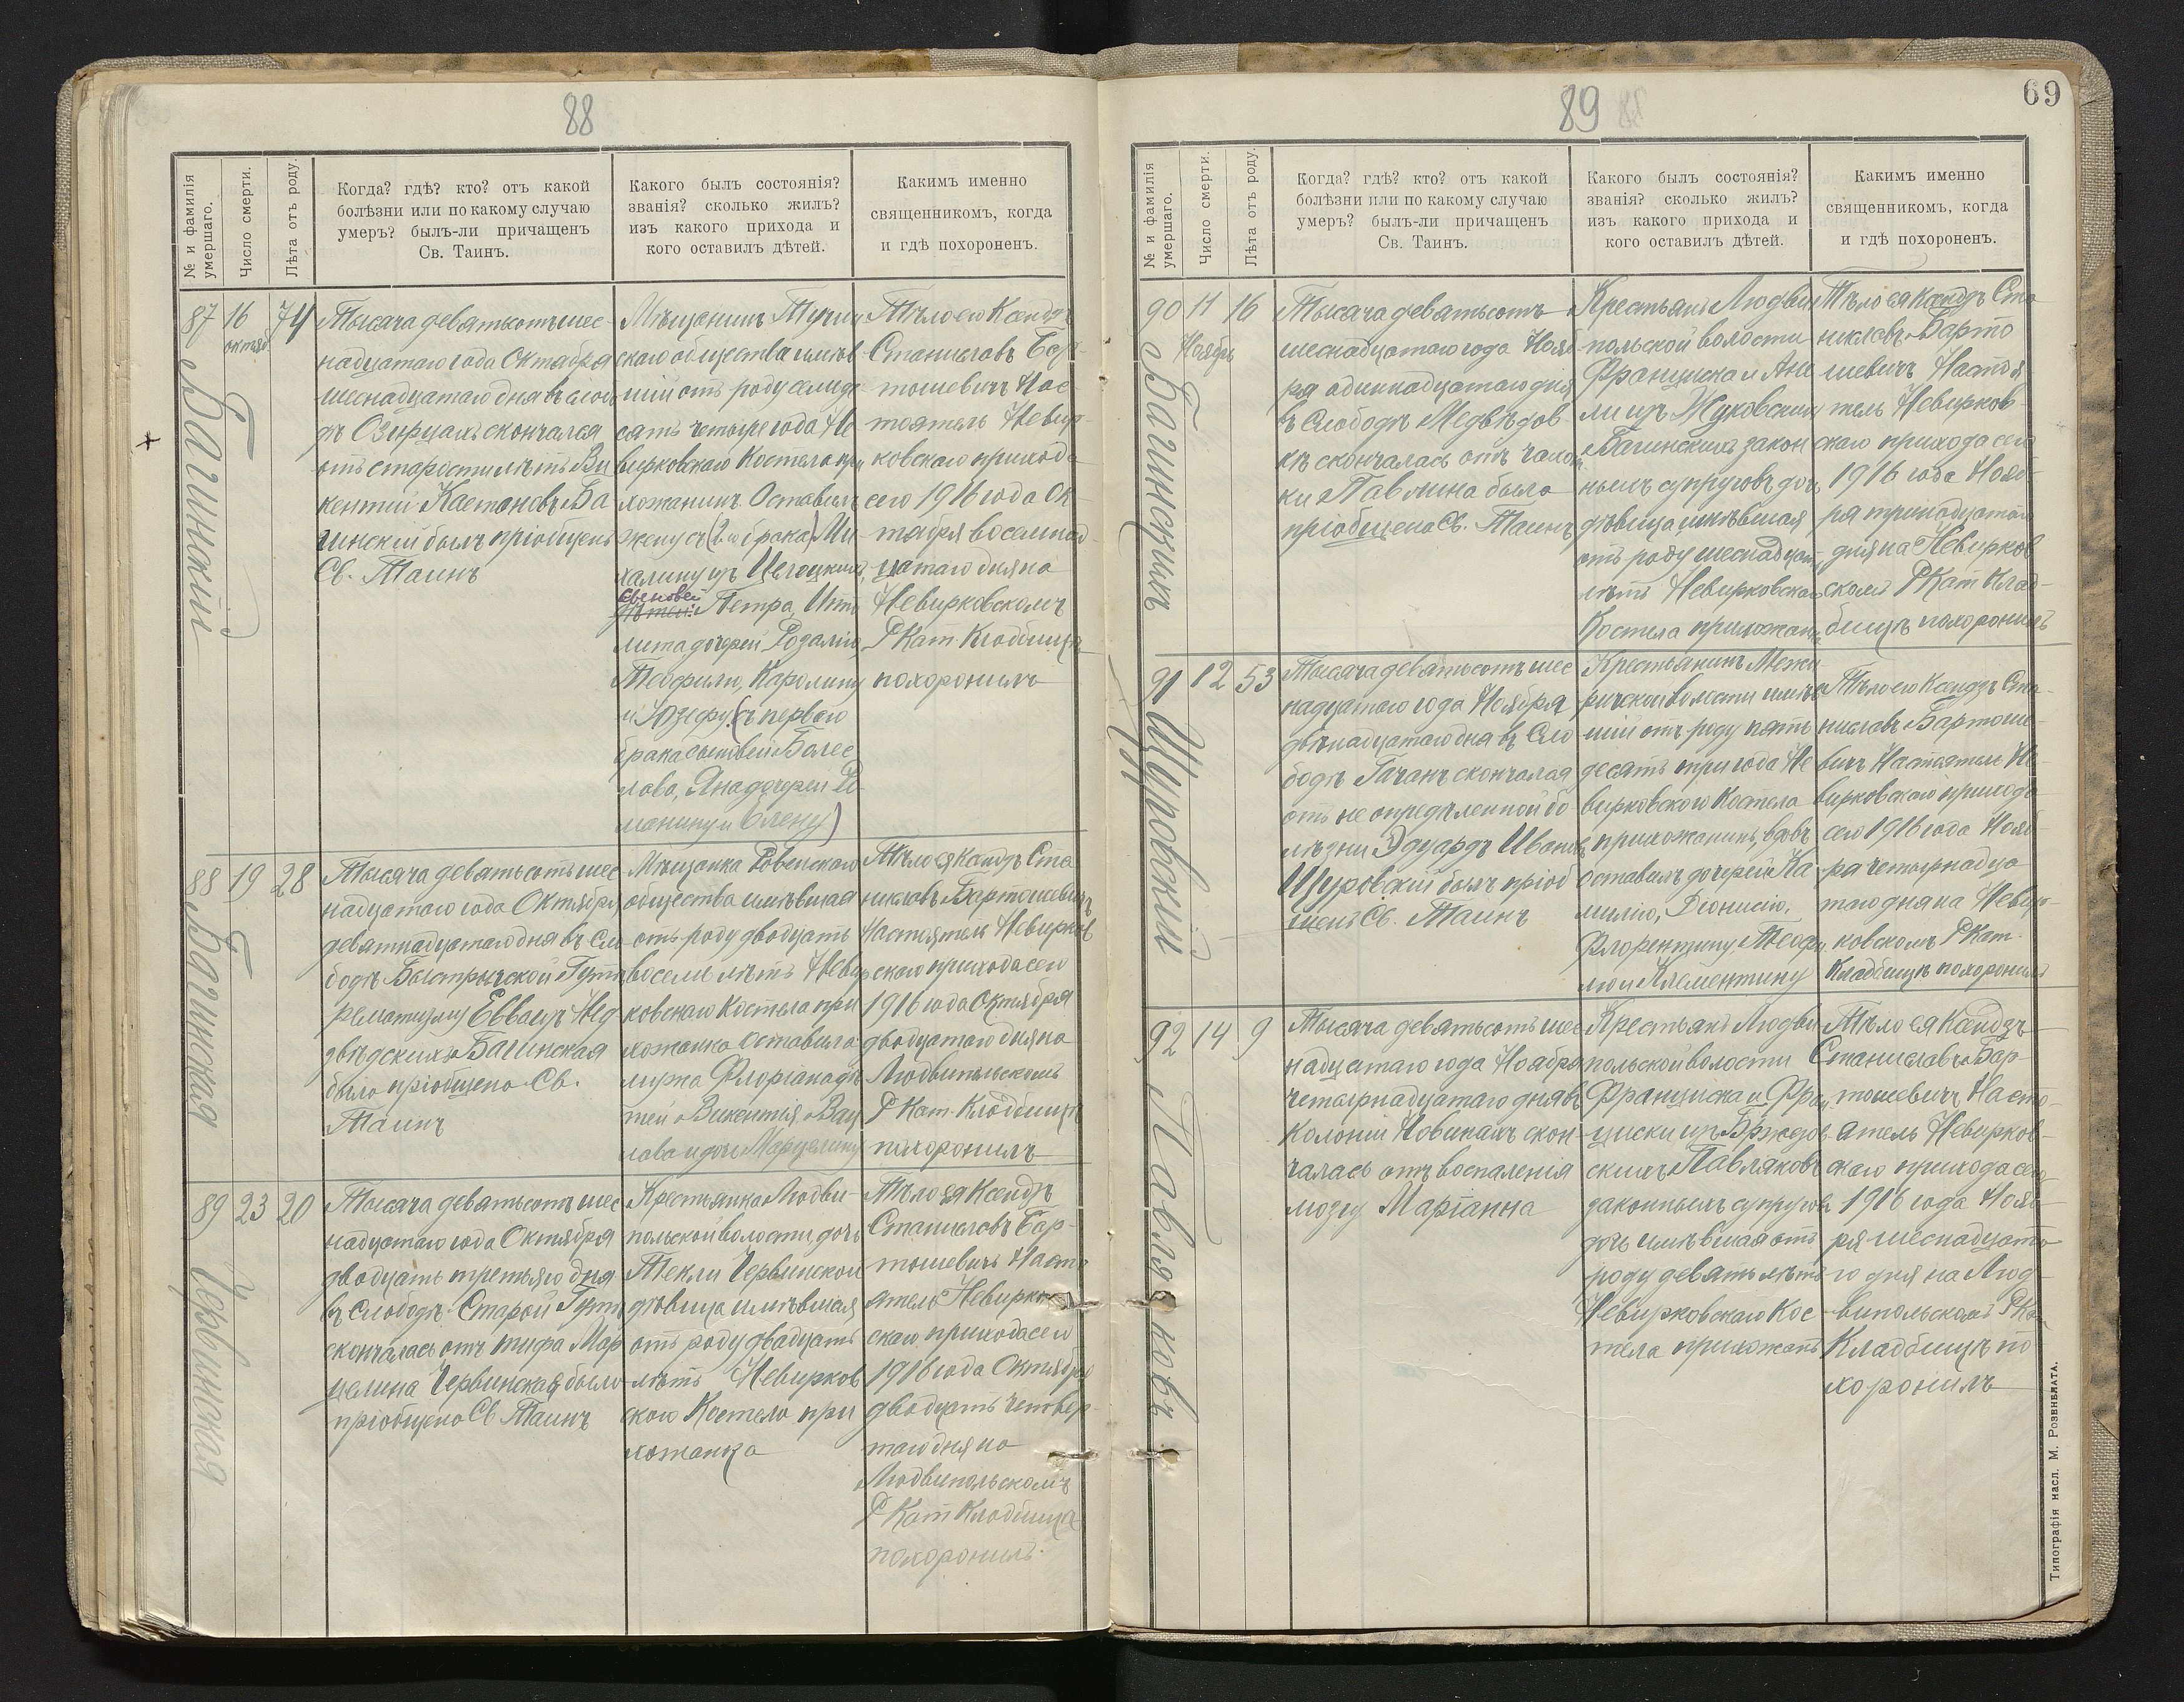 88
№ и фамилія умершаго.
Число смерти.
Лѣта отъ роду.
Когда? гдѣ? кто? отъ какой
болѣзни или по какому случаю
умеръ? былъ-ли причащенъ
Св. Таинъ.
Какого былъ состоянія?
званія? сколько жилъ?
изъ какого прихода и
кого оставилъ дѣтей.
Какимъ именно
священникомъ, когда
и гдѣ похороненъ.
87
16
октяб
74
Багинскій
Тысяча девятьсотъ шес-
надцатаго года Октября
шеснадцатаго дня въ
дѣ скончался
отъ старости лѣтъ Ви
кентій Каетановъ Ба
гинскій былъ пріобщенъ
Св. Таинъ
Мѣщанинъ Тучин
скаго общества имѣв
шій отъ роду семьде
сятъ четыре года Не
вирковскаго Костела при
хожанинъ. Оставилъ
жену съ (2го брака) Ми
халину изъ
сыновей
дѣтей: Петра, Ипо
лита дочерей Розалію,
Теофилю, Каролину
и Юзефу (съ перваго
брака сыновей Болес
лава, Яна дочерей Ро
манину и Олену)
Тѣло его Ксендзъ
Станиславъ Бар-
тошевичъ Нас
тоятель Невир-
ковскаго прихода
сего 1916 года Ок-
тября восемнад-
цатаго дня на
Невирковскомъ
Р Кат. Кладбищѣ
похоронилъ
88
19
28
Багинская
Тысяча девятьсотъ шес
надцатаго года Октября
девятнадцатаго дня въ Сло
бодѣ Быстрычской Гутѣ
рематизму Евва изъ Нед
звѣдскихъ Багинская
была пріобщена Св.
Таинъ
Мѣщанка Ровенскаго
общества имѣвшая
отъ роду двадцать
восемь лѣтъ Невир
ковскаго Костела при
хожанка оставила
мужа Флоріана дѣ
тей Викентія Вац
лава и дочь Марцелину
Тѣло ея Ксендзъ Ста
ниславъ Бартошевичъ
Настоятель Невирков
скаго прихода сего
1916 года Октября
двадцатаго дня на
Людвипольскомъ
Р Кат. Кладбищѣ
похоронилъ
89
23
20
Червинская
Тысяча девятьсотъ шес
надцатаго года Октября
двадцать третьяго дня
въ Слободѣ Старой Гутѣ
скончалась отъ тифа Мар
целина Червинская была
пріобщена Св Таинъ
Крестьянка Людви-
польской волости, дочь
Текли Червинской
дѣвица имѣвшая
отъ роду двадцать
лѣтъ Невирков
скаго Костела при
хожанка
Тѣло ея Ксендзъ
Станиславъ Бар-
тошевичъ Насто
ятель Невирков
скаго прихода сего
1916 года Октября
двадцать четвер-
таго дня на
Людвипольскомъ
Р Кат Кладбищѣ
похоронилъ.
89
69
№ и фамилія умершаго.
Число смерти.
Лѣта отъ роду.
Когда? гдѣ? кто? отъ какой
болѣзни или по какому случаю
умеръ? былъ-ли причащенъ
Св. Таинъ.
Какого былъ состоянія?
званія? сколько жилъ?
изъ какого прихода и
кого оставилъ дѣтей.
Какимъ именно
священникомъ, когда
и гдѣ похороненъ.
90
11
Ноябрь
16
Багинскихъ
Тысяча девятьсотъ
шеснадцатаго года Нояб-
ря одиннадцатаго дня
въ Слободѣ Медвѣдов-
кѣ скончалась отъ чахот
ки Павлина была
пріобщена Св. Таинъ
Крестьянъ Людви
польской волости
Франциска и Ане
ли изъ Жуковскихъ
Багинскихъ закон
ныхъ супруговъ дочь
дѣвица имѣвшая
отъ роду шеснадцать
лѣтъ Невирковскаго
Костела прихожан
Тѣло ея Ксендзъ Ста
ниславъ Барто
шевичъ Настоя
тель Невирков-
скаго прихода сего
1916 года Нояб-
ря тринадцатаго
дня на Невирков
скомъ Р Кат Клад-
бищѣ похоронилъ
91
12
53
Щуровскій
Тысяча девятьсотъ шес
надцатаго года Ноября
двѣнадцатаго дня въ Сло
бодѣ Гачанъ скончался
отъ не опредѣленной бо
лѣзни Эдуардъ Ивановъ
Щуровскій былъ пріоб
щенъ Св. Таинъ
Крестьянинъ Межи
ричской волости имѣв
шій отъ роду пять
десятъ три года Не
вирковского Костела
прихожанинъ, вдовъ
оставилъ дочерей Ка
милію, Діонисію,
Флорентину, Теофи
лю и Клементину
Тѣло его Ксендзъ Ста-
ниславъ Бартоше-
вичъ Настоятель Не-
вирковскаго прихода
сего 1916 года Нояб-
ря четырнадца
таго дня на Невир-
ковскомъ Р Кат.
Кладбищѣ похоронилъ
92
14
9
Павляковъ
Тысяча девятьсотъ шес
надцатаго года Ноября
четырнадцатаго дня въ
Колоніи Новинахъ скон-
чалась отъ воспаленія
мозгу Маріанна
Крестьянъ Людви
польской волости
Франциска и Фран
циски изъ Бржезов
скихъ Павляковъ
законныхъ супруговъ
дочь имѣвшая отъ
роду девять лѣтъ
Невирковскаго Кос
тела прихожанъ
Тѣло ея Ксендзъ
Станиславъ Бар
тошевичъ Насто-
ятель Невирков-
скаго прихода сего
1916 года Нояб-
ря шеснадцата
го дня на Люд-
випольскомъ Р Ка
Кладбищѣ по
хоронилъ
Типографія насл. М. Розенблата.